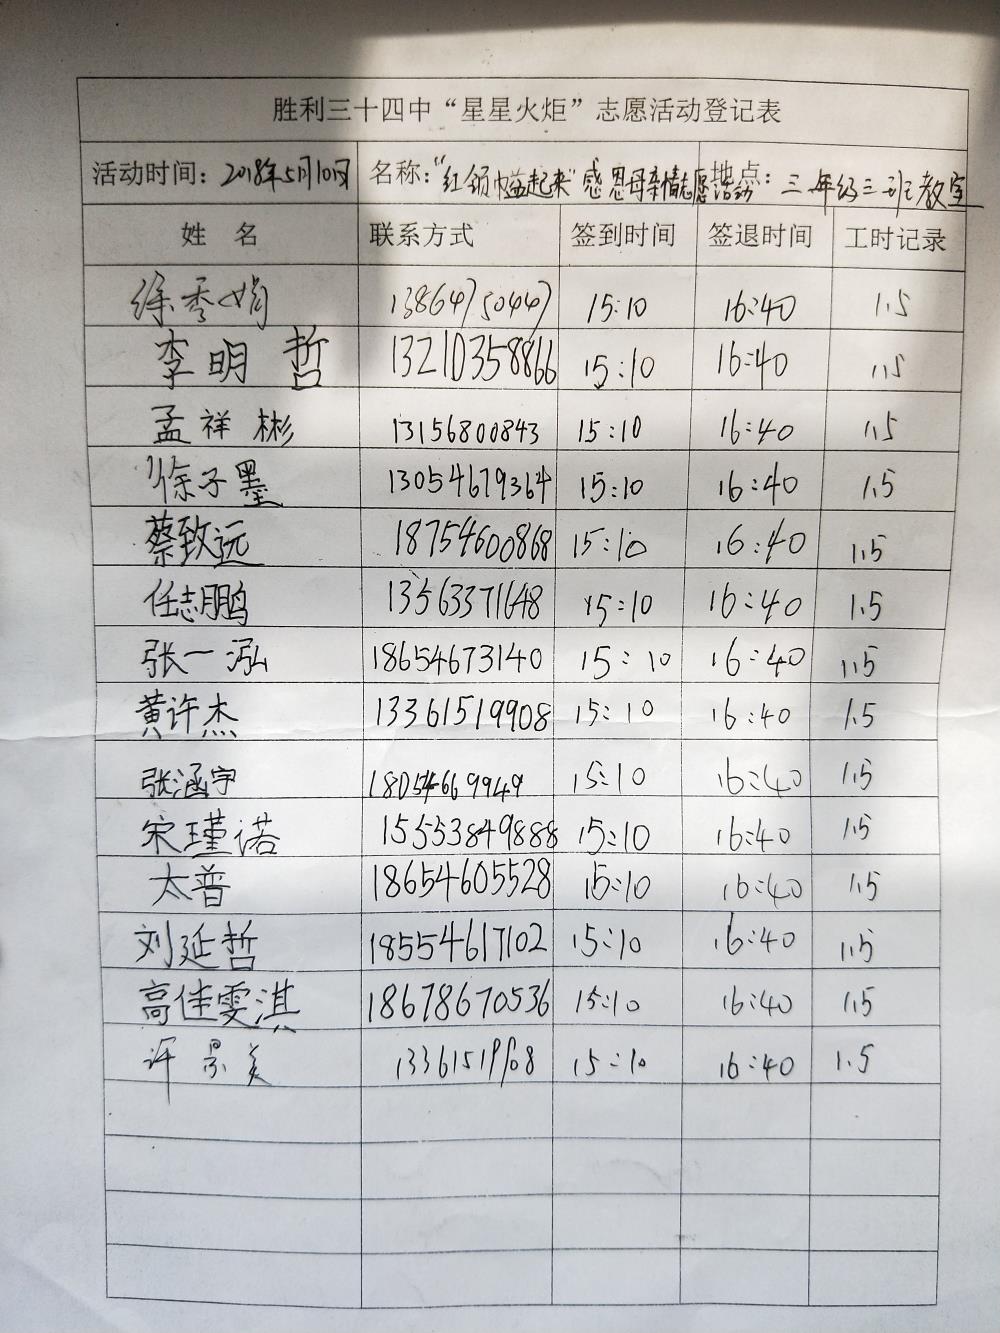 胜利三十四中“星星火炬”志愿活动登记表
活动时间：2018年5月10日 名称：“红领巾益起来”感恩母亲情志愿活动 地点：三年级三班教室
姓 名 联系方式 签到时间 签退时间 工时记录
徐秀娟 13864750447 15:10 16:40 1.5
李明哲 13210358866 15:10 16:40 1.5
孟祥彬 13156800843 15:10 16:40 1.5
徐子墨 13054679364 15:10 16:40 1.5
蔡致远 18754600868 15:10 16:40 1.5
任志鹏 13563371648 15:10 16:40 1.5
张一泓 18654673140 15:10 16:40 1.5
黄许杰 13361519908 15:10 16:40 1.5
张涵宇 18054669949 15:10 16:40 1.5
宋瑾诺 15553849888 15:10 16:40 1.5
太普 18654605528 15:10 16:40 1.5
刘延哲 18554617102 15:10 16:40 1.5
高佳雯淇 18678670536 15:10 16:40 1.5
许景美 15:10 16:40 1.5